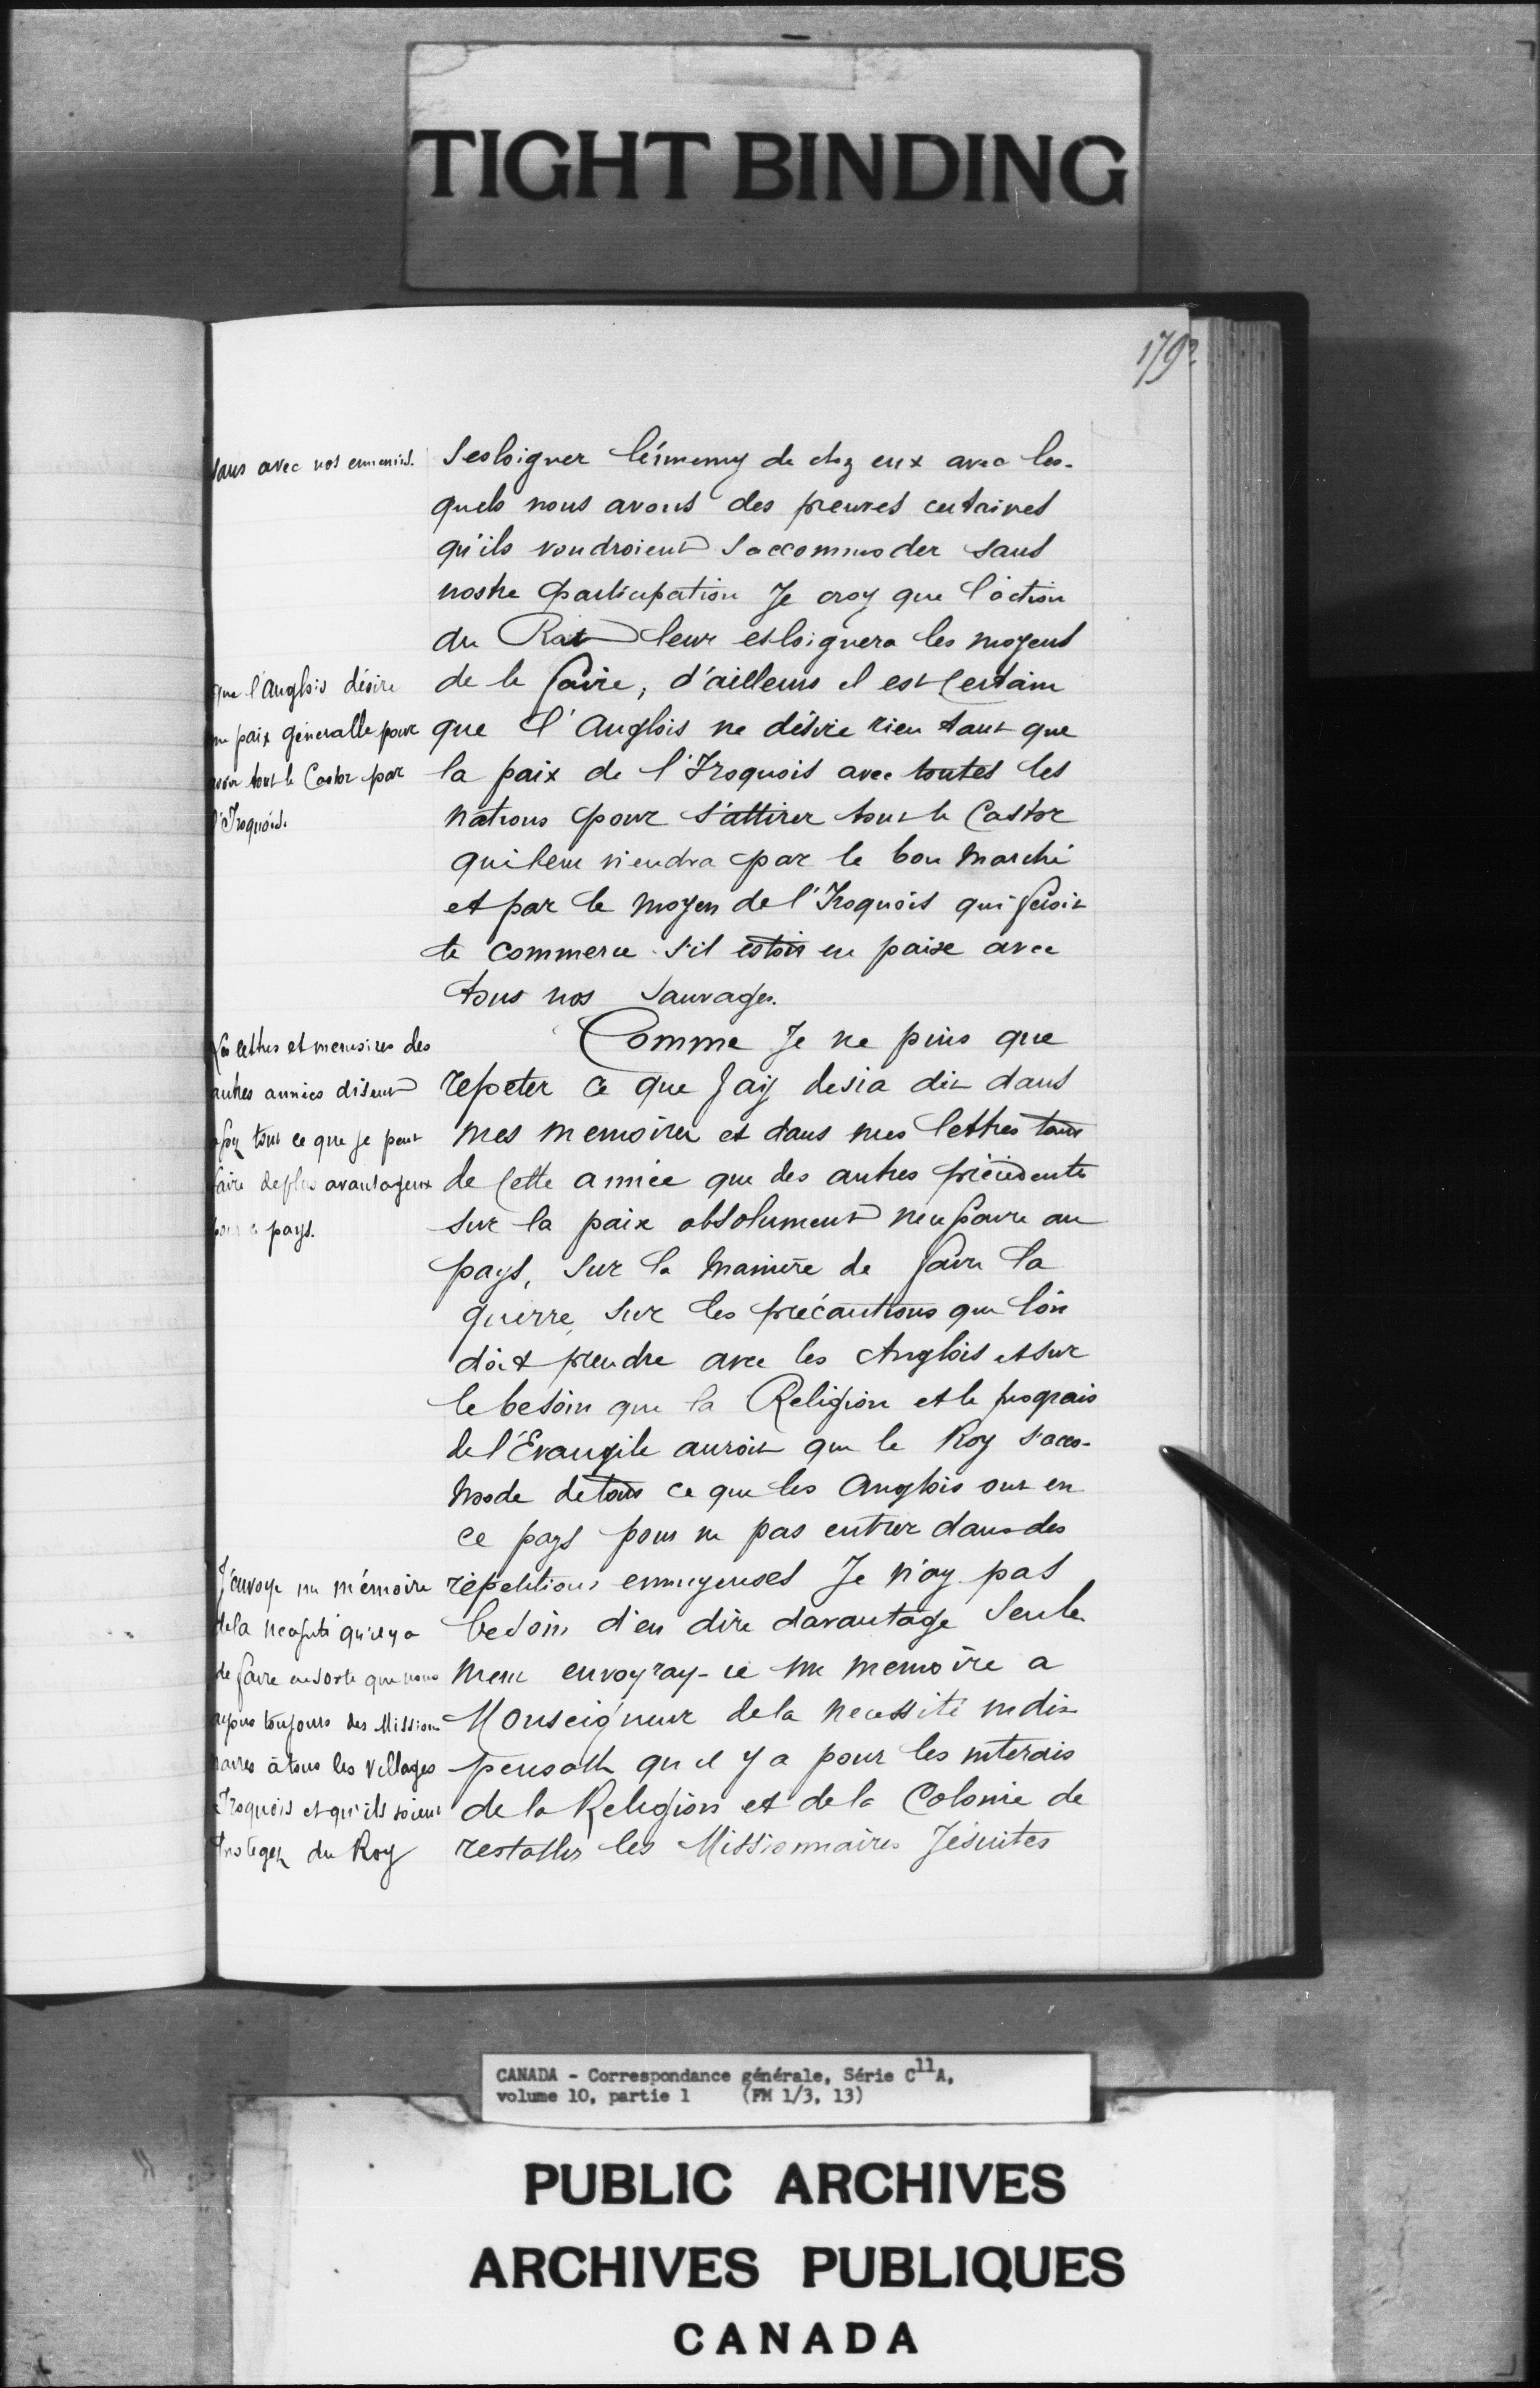 TIGHT BINDING
179
sans avec nos ennemis.
S'esloigner l'énnemy de chez eux avec les-
quels nous avons des preuves certaines
qu'ils voudroient s'accommoder sans
nostre participation Je croy que l'action
du Rat leur esloignera les moyens
de le faire, d'ailleurs il est certain
que l'Anglois ne désire rien tant que
la paix de l'Iroquois avec toutes les
nations pour s'attirer tout le Castor
qui leur viendra par le bon marché
et par le moyen de l'Iroquois qui feroit
le commerce s'il estoit en paix avec
tous nos Sauvages.
que l'Anglois désire
paix generalle pour
avoir tout le Castor par
l'Iroquois.
Comme Je ne puis que
repeter ce que J'ay desia dit dans
mes memoires et dans mes lettres tant
de cette année que des autres précédente
sur la paix absolument necessaire au
pays, sur la manière de faire la
guerre, sur les précautions que l'on
doit prendre avec les Anglois et sur
le besoin que la Religion et le prograis
de l'Evangile auroit que le Roy s'acco-
mode de tous ce que les Anglois ont en
ce pays pour ne pas entrer dans des
répétitions ennuyeuses Je n'ay pas
besoin d'en dire davantage Seule
ment envoyray-ie un memoire a
Monseigneur de la necessité indis
pensable qu'il y a pour les interais
de la Religion et de la Colonie de
restablir les Missionnaires Jésuites
Les lettres et memoires des
autres années disent
assez tout ce que je peut
faire de plus avantageux
pour ce pays.
J'envoye un mémoire
de la necessité qu'il y a
de faire en sorte que nous
ayons toujours des Mission
naires à tous les villages
Iroquois et qu'ils soient
protegez du Roy
CANADA - Correspondance générale, Série C11A,
volume 10, partie 1 (FM 1/3, 13)
PUBLIC ARCHIVES
ARCHIVES PUBLIQUES
CANADA